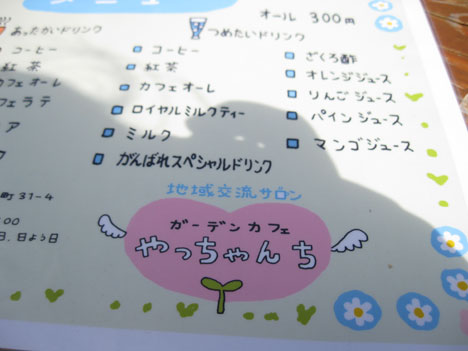 ニュー
オール 300円
あったかいドリンク
コーヒー
紅茶
フェオーレ
フェラテ
ア
つめたいドリンク
コーヒー
紅茶
カフェオーレ
ロイヤルミルクティー
ミルク
がんばれスペシャルドリンク
ざくろ酢
オレンジジュース
りんごジュース
パインジュース
マンゴジュース
町31-4
:00
日、日よう日
地域交流サロン
ガーデンカフェ
やっちゃんち